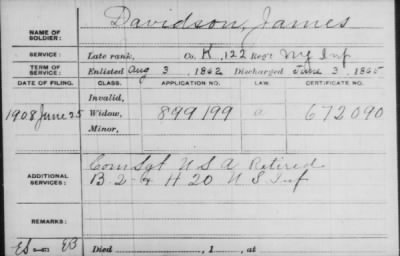 NAME OF SOLDIER: Davidson, James
SERVICE: Late rank, Co. K, 122 Reg't N.Y. Inf
TERM OF SERVICE: Enlisted Aug 3, 1862 Discharged June 3, 1865
DATE OF FILING. CLASS. APPLICATION NO. LAW. CERTIFICATE NO.
Invalid,
1908 June 25 Widow, 899199 a 672090
Minor,
ADDITIONAL SERVICES: Com Sgt U S A Retired
B-2-& H 20 U S Inf
REMARKS:
Died, 1, at